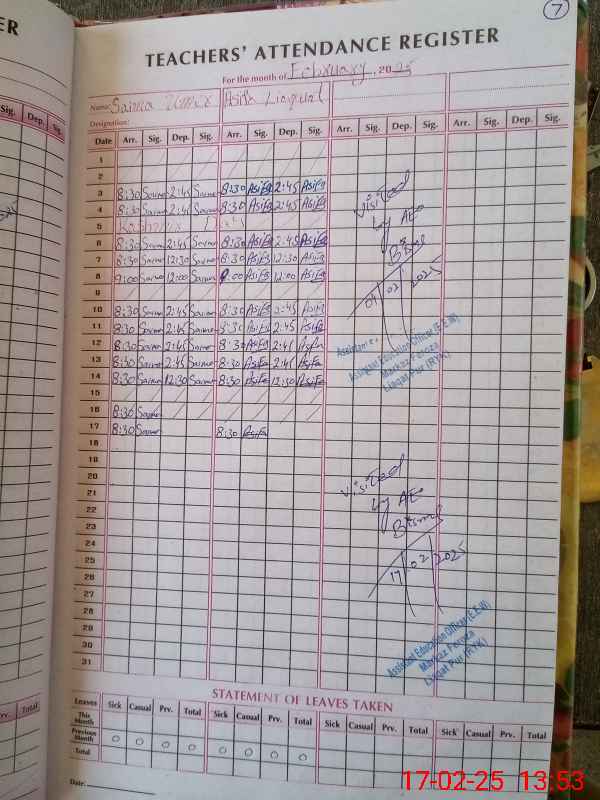 7
ER
TEACHERS' ATTENDANCE REGISTER
For the month of February, 2025
Name: Saima Umix Asifa Liaquat
Designation:
Sig. Dep. Sig.
Date Arr. Sig. Dep. Sig. Arr. Sig. Dep. Sig. Arr. Sig. Dep. Sig. Arr. Sig. Dep. Sig.
1
2
3 8:30 2:45 8:30 Asifa 2:45 Asifa
4 8:30 2:45 8:30 Asifa 2:45 Asifa
5 Kashmir Day
6 8:30 2:45 8:30 Asifa 2:45 Asifa
7 8:30 12:30 8:30 Asifa 12:30 Asifa
8 9:00 12:00 9:00 Asifa 12:00 Asifa
9
10 8:30 2:45 8:30 Asifa 2:45 Asifa
11 8:30 2:45 8:30 Asifa 2:45 Asifa
12 8:30 2:45 8:30 Asifa 2:45 Asifa
13 8:30 2:45 8:30 Asifa 2:45 Asifa
14 8:30 12:30 8:30 Asifa 12:30 Asifa
15
16 8:30
17 8:30 8:30 Asifa
18
19
20
21
22
23
24
25
26
27
28
29
30
31
Visited
by AEO
04/02/2025
Assistant Education Officer (E.E.W)
Markaz Feroza
Liaqat Pur (RYK)
Visited
by AEO
17/02/2025
Assistant Education Officer (E.E.W)
Markaz Feroza
Liaqat Pur (RYK)
STATEMENT OF LEAVES TAKEN
Prv. Total
Leaves Sick Casual Prv. Total Sick Casual Prv. Total Sick Casual Prv. Total Sick Casual Prv. Total
This Month
Previous Month 0 0 0 0 0 0 0 0
Total
Date:
17-02-25 13:53